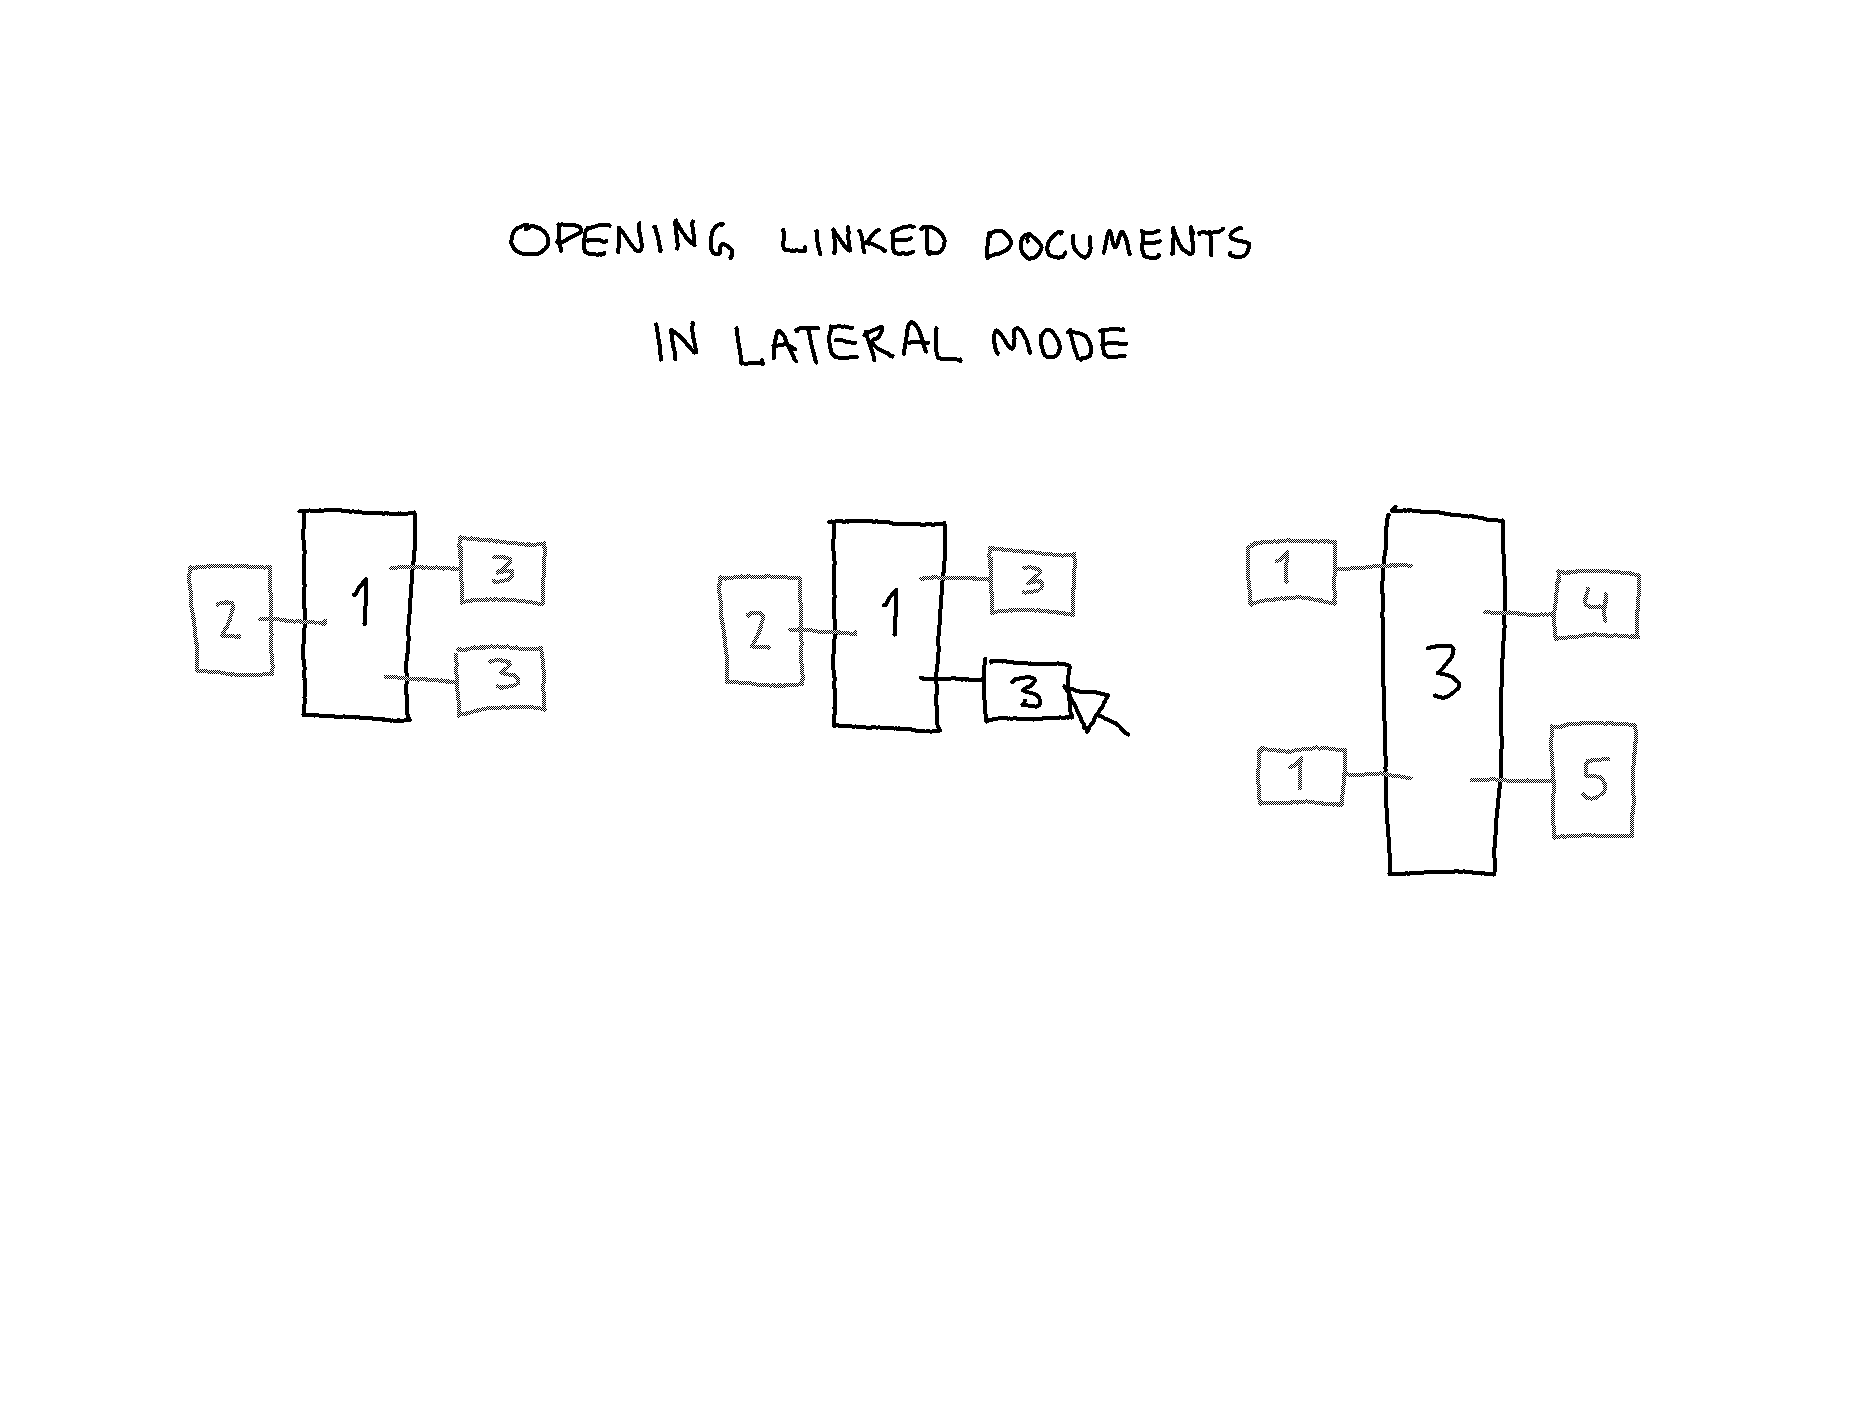 OPENING LINKED DOCUMENTS
IN LATERAL MODE
2 1 3 3
2 1 3 3
1 1 3 4 5